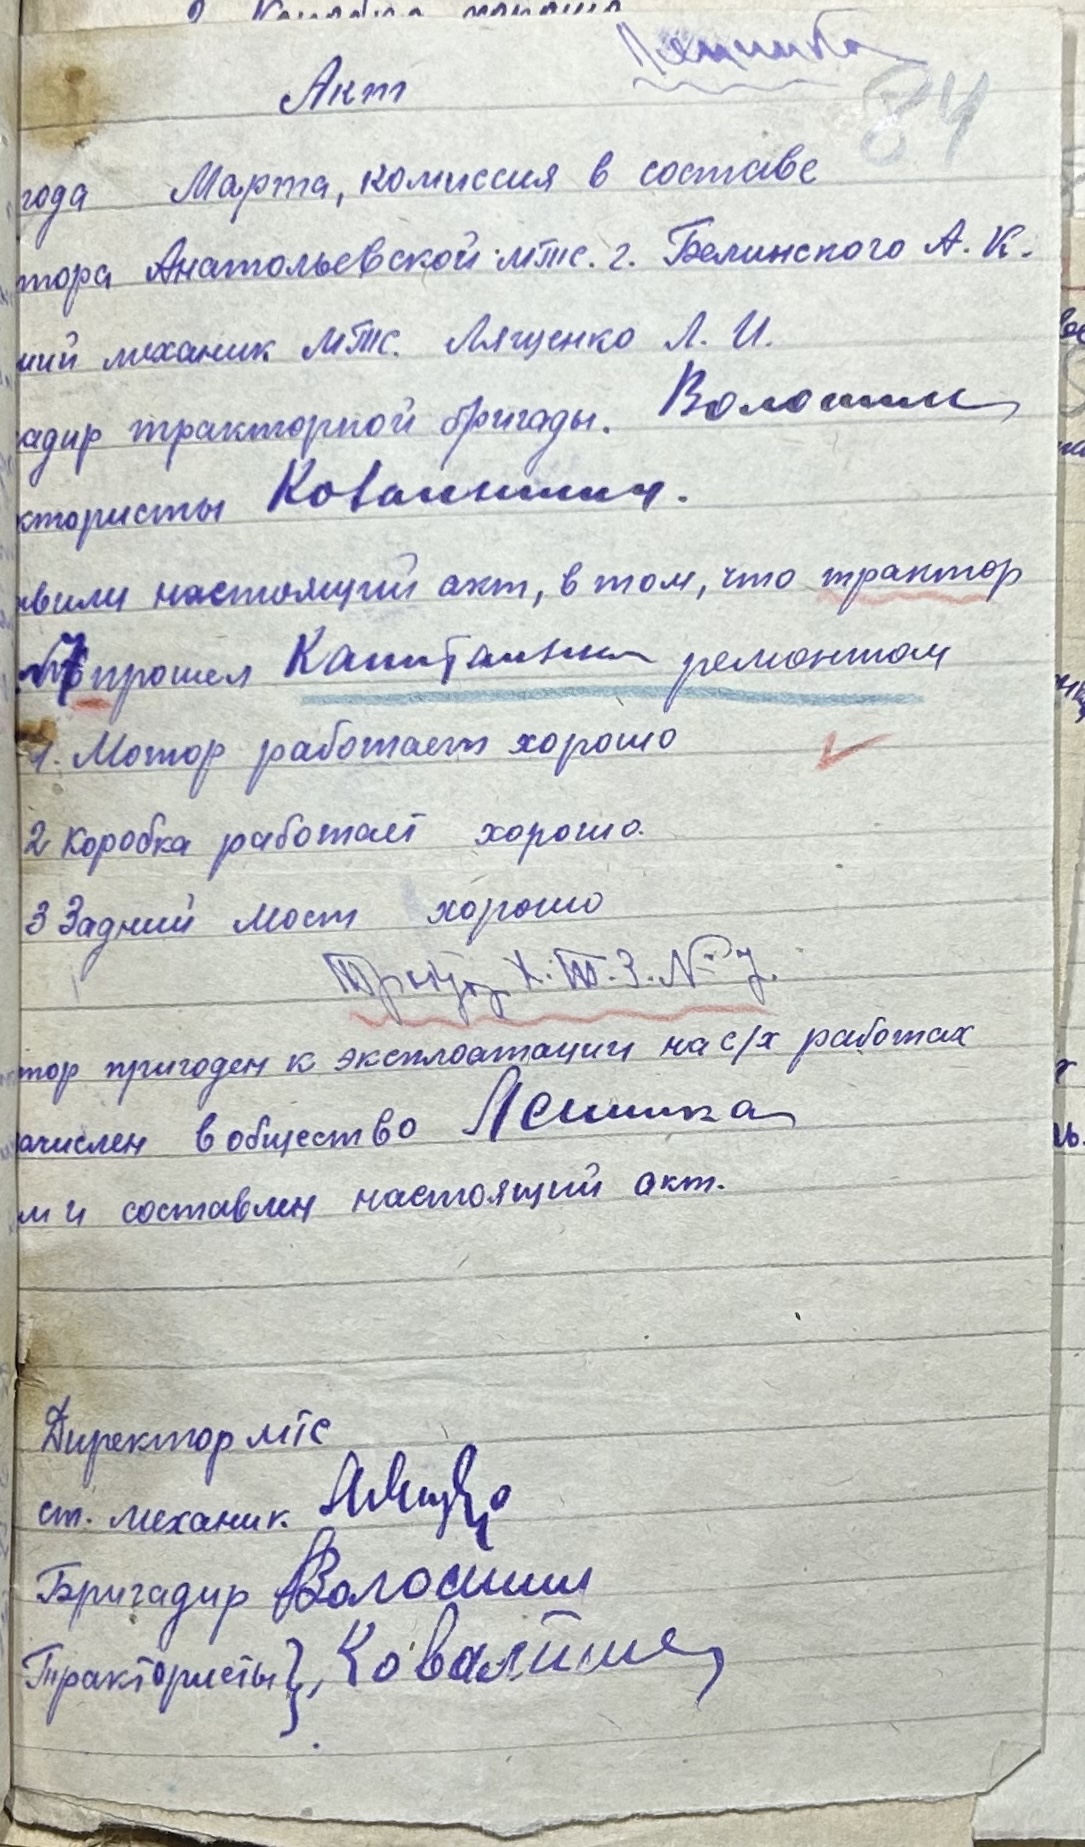 Акт
84
года Марта, комиссия в составе
тора Анатольевской мтс. г. Белинского А. К.
ший механик мтс. Лященко Л. И.
адир тракторной бригады. Волошин
ктористы
вили настоящий акт, в том, что трактор
прошел ремонтом
1. Мотор работает хорошо
2 Коробка работает хорошо.
3 Задний мост хорошо
Х.Т.З. № 7.
тор пригоден к эксплоатации на с/х работах
ачислен в общество
м и составлен настоящий акт.
Директор мтс
ст. механик.
Бригадир Волошин
Трактористы